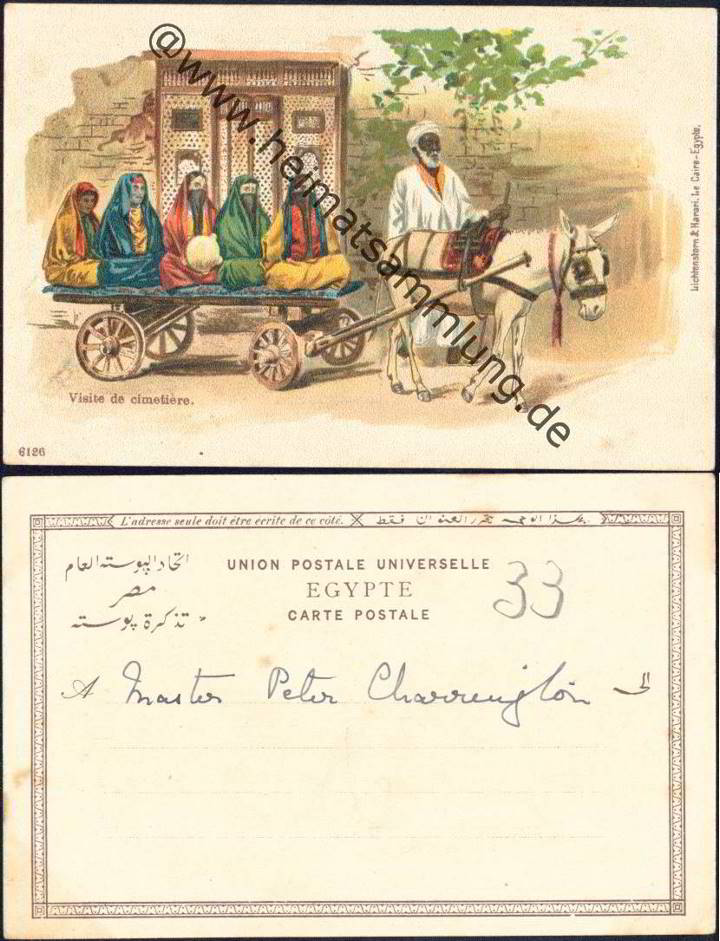 @www.heimatsammlung.de
Lichtenstern & Harari, Le Caire-Egypte.
Visite de cimetière.
6126
L'adresse seule doit être écrite de ce côté. هذا الوجه محرر العنوان فقط
اتحاد البوسته العام
مصر
تذكرة بوسته
UNION POSTALE UNIVERSELLE
EGYPTE
CARTE POSTALE
33
A Master Peter Charrington الى